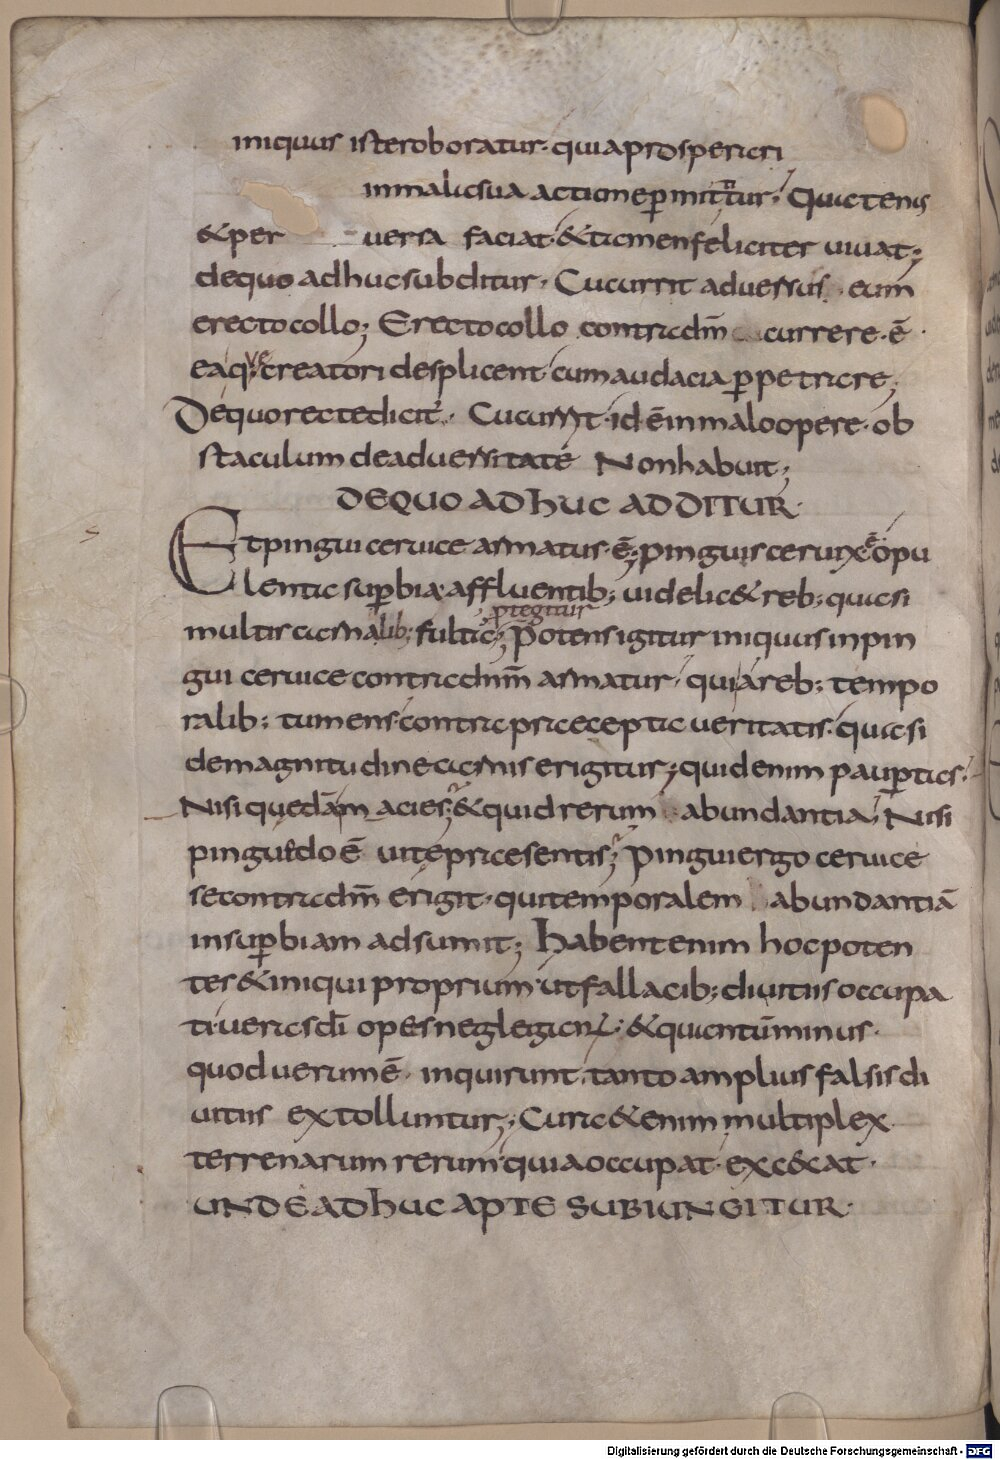 iniquus iste roboratur· quia prosperari
in mala sua actione p̄mittitur· Qui etenis
& per uersa faciat· & tamen feliciter uiuat;
de quo adhuc subditur· Cucurrit aduersus eum
erecto collo; Erecto collo contra dm̄ currere· ē·
ea que creatori desplicent cum audacia p̄petrare;
De quo recte dicit'· Cucurrit· id ē in malo opere· ob
staculum de aduersitate Non habuit;
DE QUO ADHUC ADDITUR·
Et pingui ceruice armatus· ē; pinguis ceruix ē opu
lenta sup̄bia· affluentib; uidelic& reb; quasi
multis carnalib; fulta; ptegitur Potens igitur iniquus in pin
gui ceruice contra dnm̄ armatur· quia reb; tempo
ralib; tumens· contra praecepta ueritatis· quasi
de magnitudine carnis erigitur; quid enim paup̄tas·
Nisi quedam acies; & quid rerum abundantia; Nisi
pinguedo ē uite praesentis; Pingui ergo ceruice
se contra dm̄ erigit· qui temporalem abundantiā
in sup̄biam adsumit; Habent enim hoc poten
tes & iniqui proprium ut fallacib; diuitiis occupa
ti ueras dī opes neglegant; & quantū minus·
quod uerum ē· inquirunt· tanto amplius falsis di
uitiis extolluntur; Cura &enim multiplex
terrenarum rerum quia occupat· exc&cat·
UNDE ADHUC APTE SUBIUNGITUR·
Digitalisierung gefördert durch die Deutsche Forschungsgemeinschaft - DFG